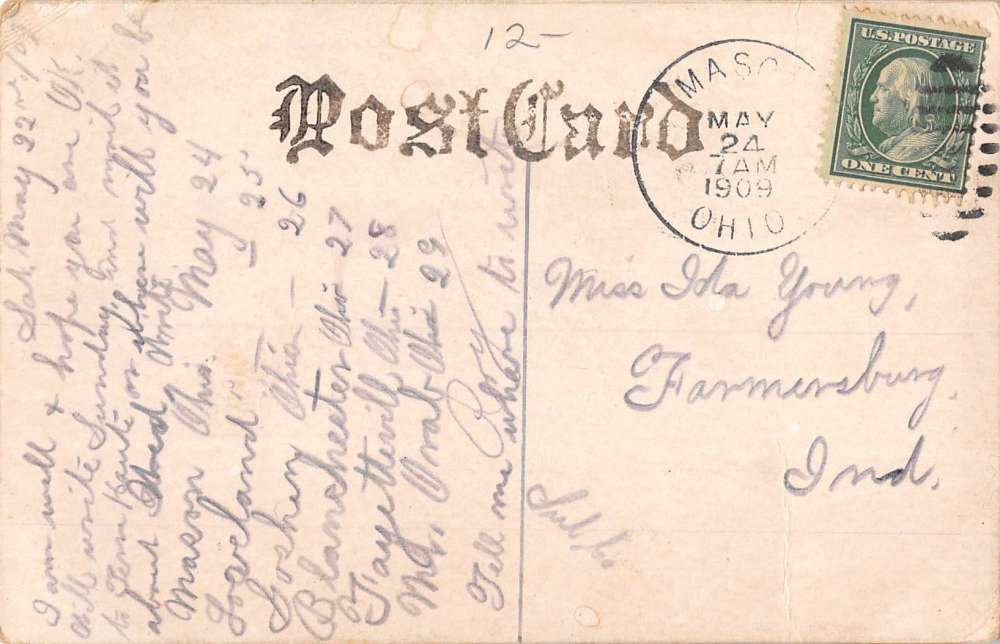 12-
Post Card
MASO
MAY
24
7 AM
1909
OHIO
U.S. POSTAGE
ONE CENT
Sat. May 22
I am well & hope you are OK.
Will write Sunday and mail it
to Terre
about Wed or where will you be
Write
Mason Ohio May 24
Loveland " " 25
Goshen Ohio - 26
Blanchester Ohio 27
Fayetteville Ohio - 28
Mt. Orab Ohio 29
Roy
Tell me where to write
Miss Ida Young,
Farmersburg,
Ind.